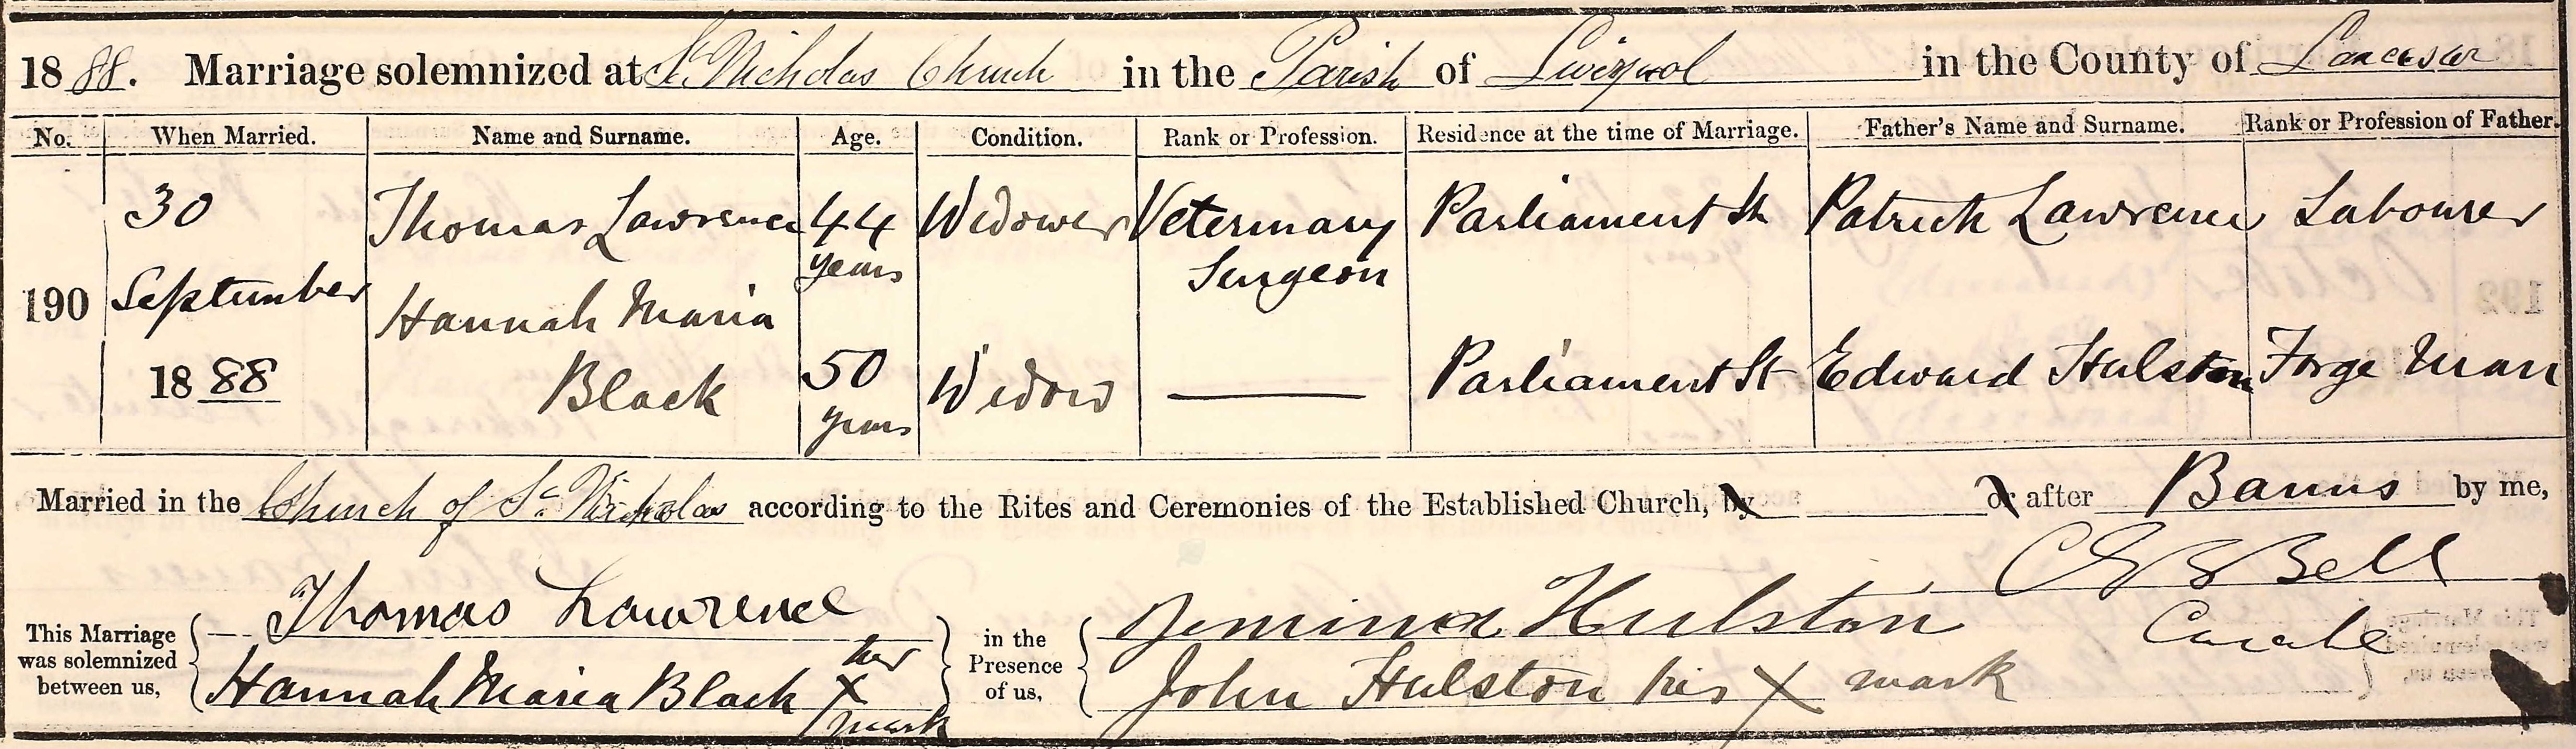 1888. Marriage solemnized at St. Nicholas Church in the Parish of Liverpool in the County of Lancaster
No. When Married. Name and Surname. Age. Condition. Rank or Profession. Residence at the time of Marriage. Father's Name and Surname. Rank or Profession of Father.
30 Thomas Lawrence 44 Widower Veterinary Parliament St Patrick Lawrence Labourer
years Surgeon
190 September Hannah Maria
1888 Black 50 Widow Parliament St Edward Hulston Forge Man
years
Married in the Church of St. Nicholas according to the Rites and Ceremonies of the Established Church, by or after Banns by me,
Thomas Lawrence Jemima Hulston C E S Bell
This Marriage was solemnized between us, in the Presence of us, Curate
Hannah Maria Black her X mark John Hulston his X mark